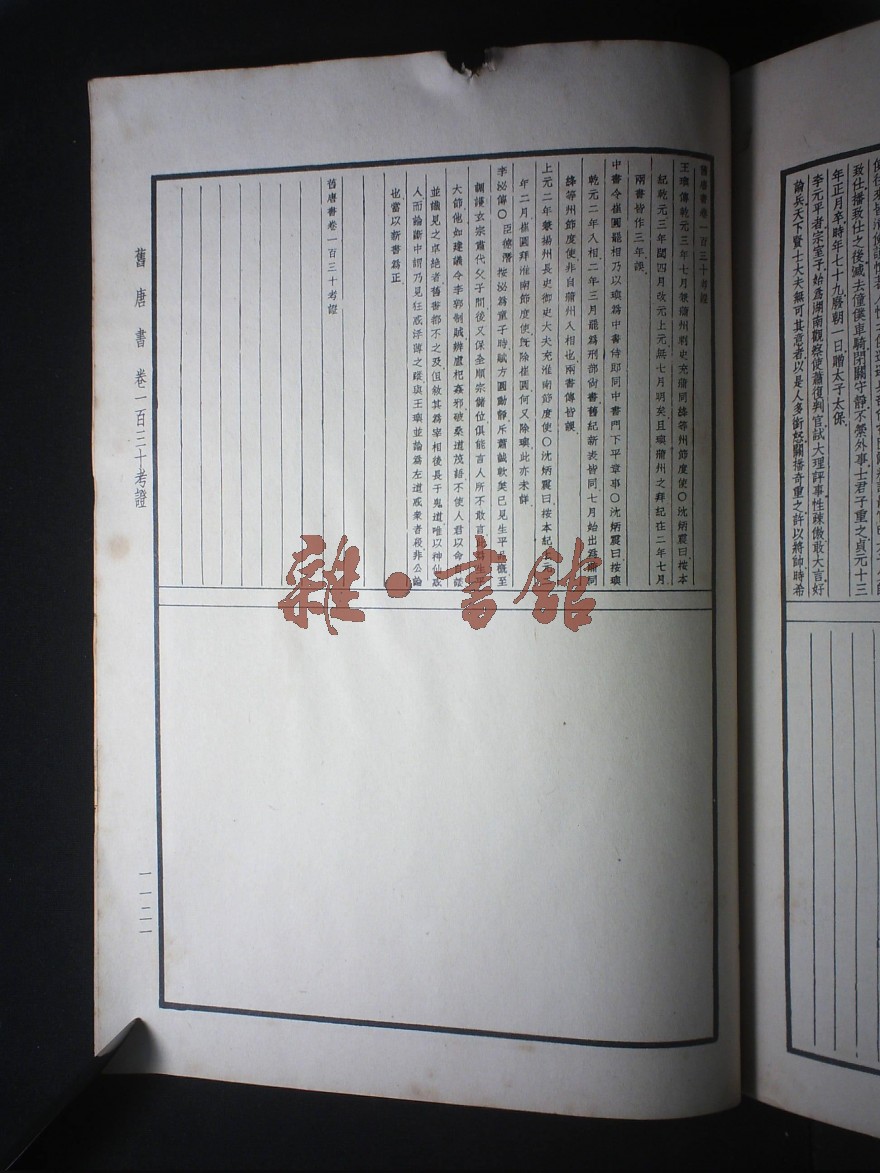 致仕播致仕之後減去僮僕車騎閉關守靜不縈外事士君子重之貞元十三
年正月卒時年七十九廢朝一日贈太子太保
李元平者宗室子始爲湖南觀察使蕭復判官試大理評事性疎傲敢大言好
論兵天下賢士大夫無可其意者以是人多銜怒關播奇重之許以將帥時希
舊唐書卷一百三十考證
王璵傳乾元三年七月兼蒲州刺史充蒲同絳等州節度使〇沈炳震曰按本
紀乾元三年閏四月改元上元無七月明矣且璵蒲州之拜紀在二年七月
兩書皆作三年誤
中書令崔圓罷相乃以璵爲中書侍郎同中書門下平章事〇沈炳震曰按璵
乾元二年入相二年三月罷爲刑部尙書舊紀新表皆同七月始出爲蒲同
絳等州節度使非自蒲州入相也兩書傳皆誤
上元二年兼揚州長史御史大夫充淮南節度使〇沈炳震曰按本紀上元
年二月崔圓拜淮南節度使旣除崔圓何又除璵此亦未詳
李泌傳〇臣德潛按泌爲童子時賦方圓動靜斥蕭誠軟美已見生平槪至
調護玄宗肅代父子間後又保全順宗儲位俱能言人所不敢言
大節他如建議令李郭制賊辨盧杞姦邪破桑道茂語不使人君以命
並識見之卓絶者舊書都不之及但敘其爲宰相後長于鬼道唯以神仙
人而論斷中謂乃見狂惑浮薄之蹤與王璵並論爲左道惑衆者殊非公論
也當以新書爲正
舊唐書卷一百三十考證
舊唐書 卷一百三十考證
一一二一
雜·書館